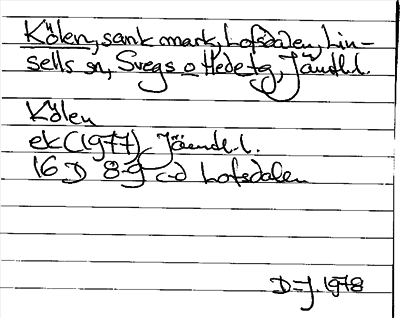 Kölen, sank mark, Lofsdalen, Lin-
sells sn, Svegs o Hede tg, Jämtl.l.
Kölen
ek (1977), Jämtl.l.
16 D 8-9 c-d Lofsdalen
D-J. 1978